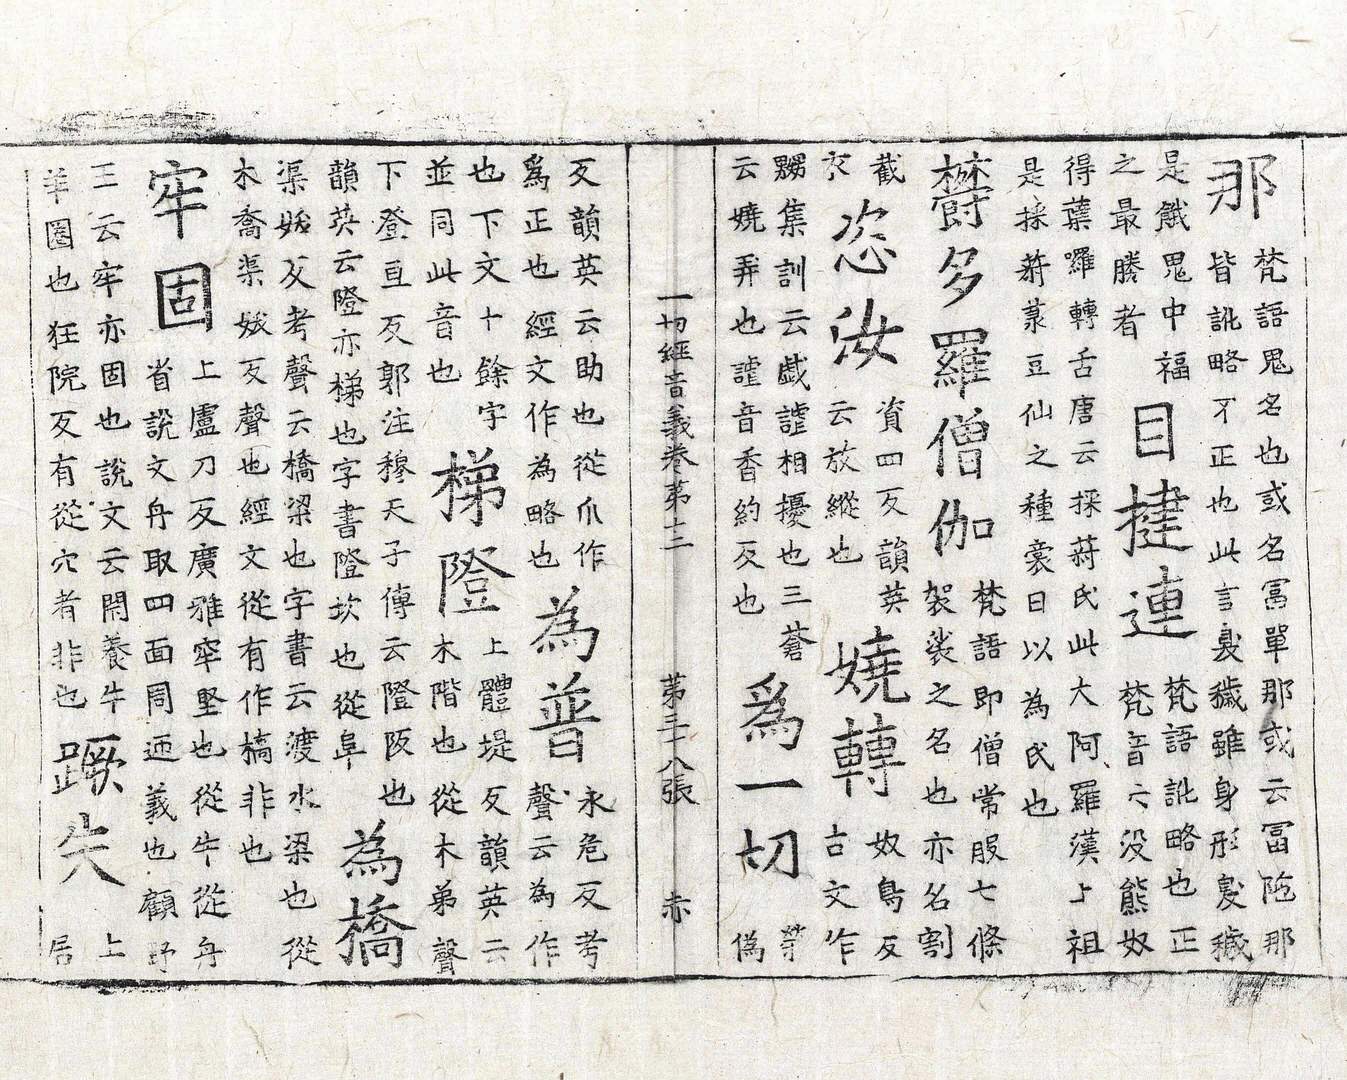 那
梵語鬼名也或名冨單那或云冨陁那
皆訛略不正也此言臰穢雖身形臰穢
是餓鬼中福
之最勝者
目揵連
梵語訛略也正
梵音云没熊奴
得葉囉轉舌唐云採蔣氏此大阿羅漢上祖
是採蔣菉豆仙之種裔日以為氏也
欝多羅僧伽
梵語即僧常服七條
袈裟之名也亦名割
截
衣
恣汝
資四反韻英
云放縱也
嬈轉
奴鳥反
古文作
嬲集訓云戯謔相擾也三蒼
云嬈弄也謔音香約反也
爲一切
榮
偽
一切經音義卷第十二 第三十八張 赤
反韻英云助也從爪作
爲正也經文作為略也
為普
永危反考
聲云為作
也下文十餘字
並同此音也
梯隥
上體堤反韻英云
木階也從木弟聲
下登亘反郭注穆天子傳云隥阪也
韻英云隥亦梯也字書隥坎也從阜
為橋
渠妖反考聲云橋梁也字書云渡水梁也從
木喬渠娥反聲也經文從有作槗非也
牢固
上盧刀反廣雅牢堅也從牛從舟
省說文舟取四面周迊義也顧野
王云牢亦固也說文云閑養牛
羊圈也狂院反有從穴者非也
蹶失
上
居